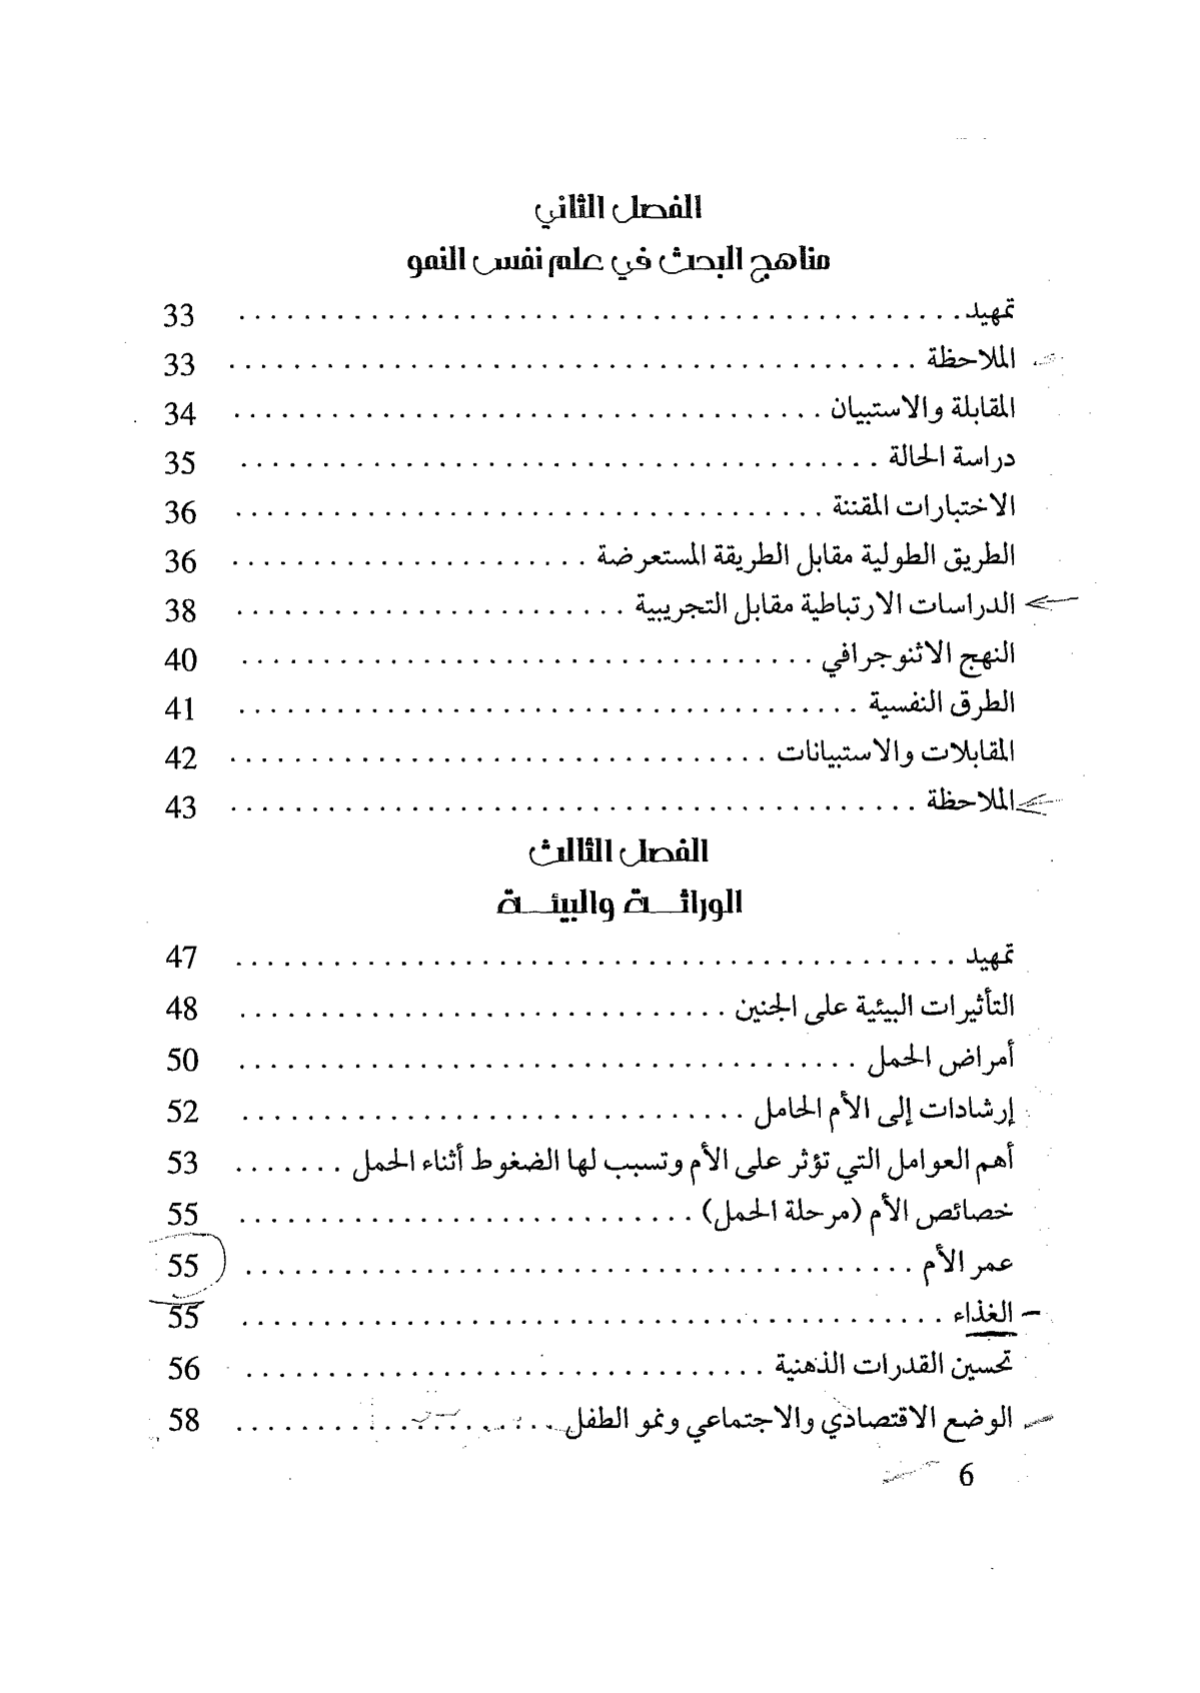 الفصل الثاني
مناهج البحث في علم نفس النمو
تمهيد . . . . . . . . . . . . . . . . . . . . 33
الملاحظة . . . . . . . . . . . . . . . . . . . . 33
المقابلة والاستبيان . . . . . . . . . . . . . . . . . . . . 34
دراسة الحالة . . . . . . . . . . . . . . . . . . . . 35
الاختبارات المقننة . . . . . . . . . . . . . . . . . . . . 36
الطريق الطولية مقابل الطريقة المستعرضة . . . . . . . . . . . . . . . . . . . . 36
الدراسات الارتباطية مقابل التجريبية . . . . . . . . . . . . . . . . . . . . 38
النهج الاثنوجرافي . . . . . . . . . . . . . . . . . . . . 40
الطرق النفسية . . . . . . . . . . . . . . . . . . . . 41
المقابلات والاستبيانات . . . . . . . . . . . . . . . . . . . . 42
الملاحظة . . . . . . . . . . . . . . . . . . . . 43
الفصل الثالث
الوراثة والبيئة
تمهيد . . . . . . . . . . . . . . . . . . . . 47
التأثيرات البيئية على الجنين . . . . . . . . . . . . . . . . . . . . 48
أمراض الحمل . . . . . . . . . . . . . . . . . . . . 50
إرشادات إلى الأم الحامل . . . . . . . . . . . . . . . . . . . . 52
أهم العوامل التي تؤثر على الأم وتسبب لها الضغوط أثناء الحمل . . . . . . . 53
خصائص الأم (مرحلة الحمل) . . . . . . . . . . . . . . . . . . . . 55
عمر الأم . . . . . . . . . . . . . . . . . . . . 55
الغذاء . . . . . . . . . . . . . . . . . . . . 55
تحسين القدرات الذهنية . . . . . . . . . . . . . . . . . . . . 56
الوضع الاقتصادي والاجتماعي ونمو الطفل . . . . . . . . . . . . . . . . . . . . 58
6